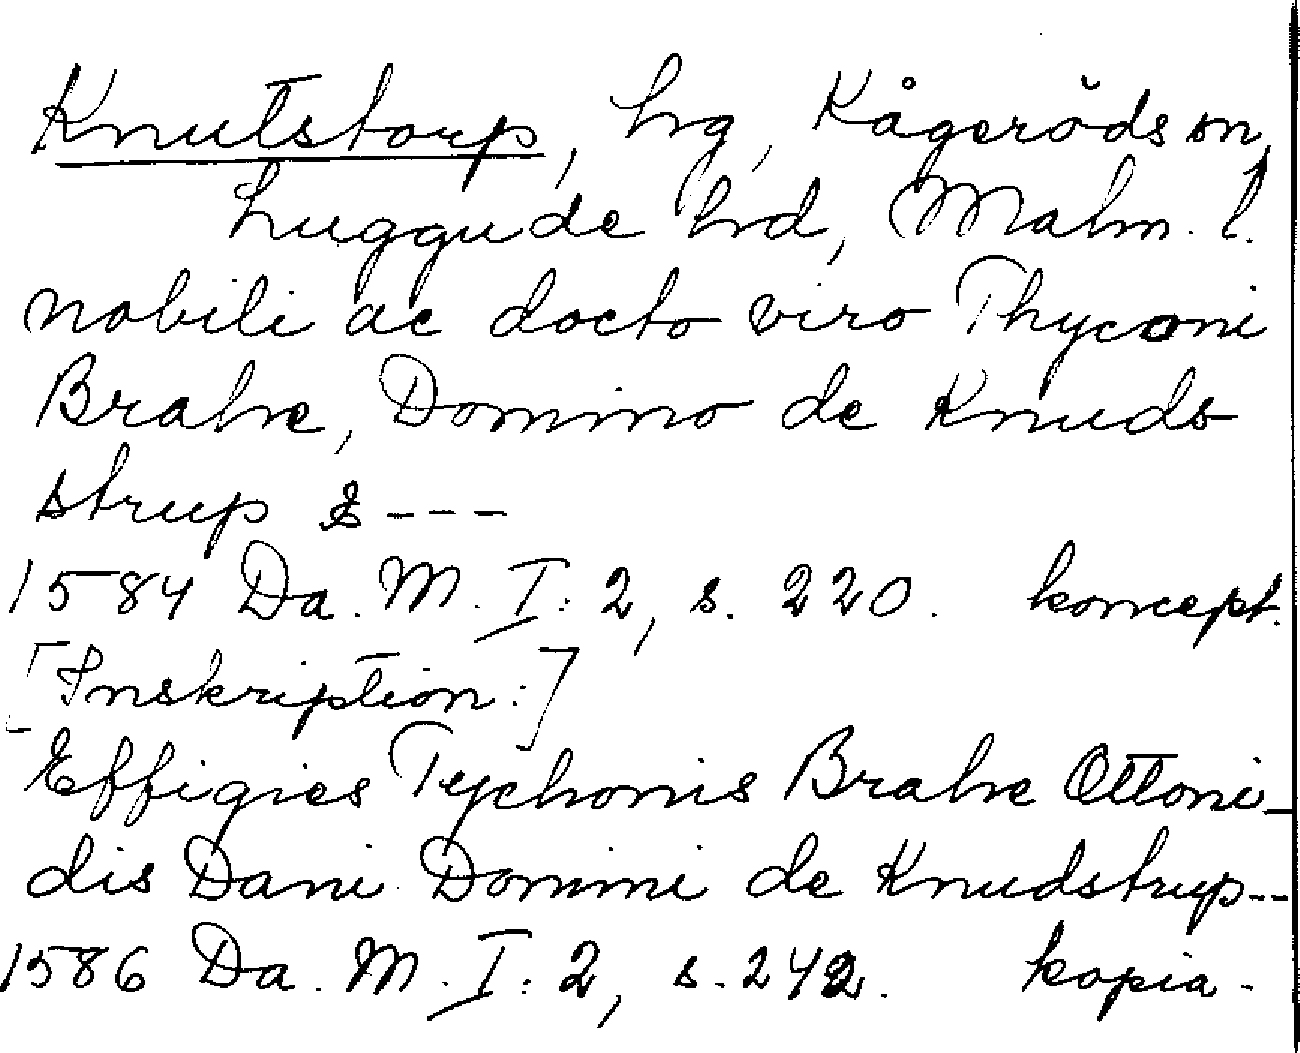 Knutstorp, hrg, Kågeröds sn,
Luggude hrd, Malm. l.
nobili ac docto viro Thyconi
Brahe, Domino de Knuds
strup & ---
1584 Da. M. I: 2, s. 220. koncept.
[Inskription:]
Effigies Tychonis Brahe Ottoni-
dis Dani Domini de Knudstrup--
1586 Da. M. I: 2, s. 242. kopia.